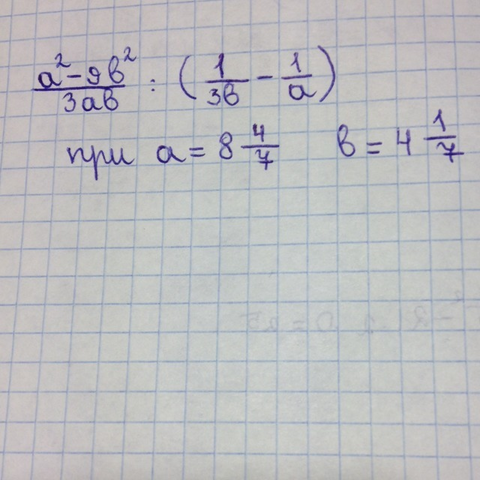 (a² - 9b²)/(3ab) : (1/(3b) - 1/a)
при a = 8 4/7 b = 4 1/7